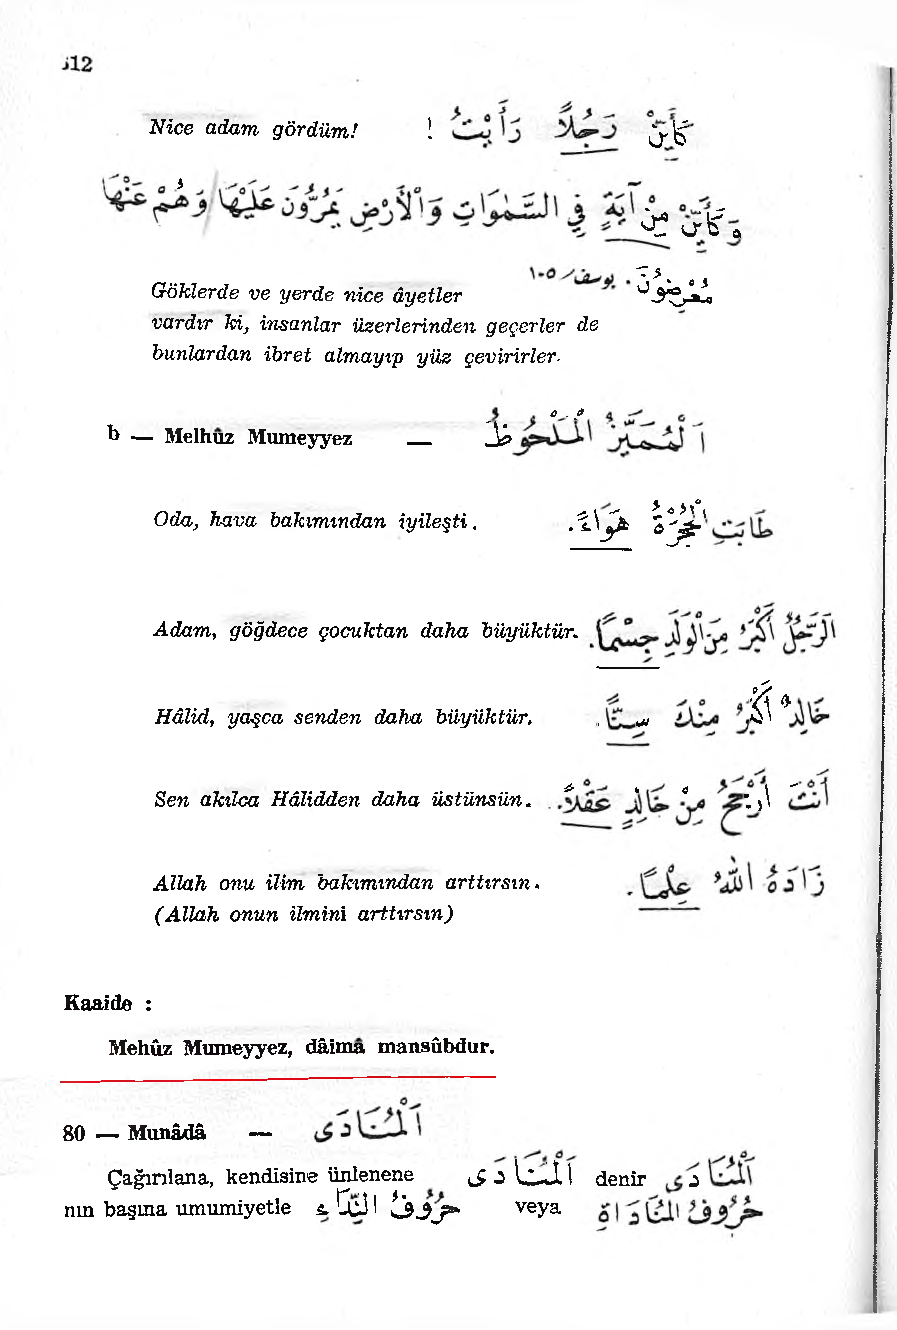 512
Nice adam gördüm! كَأَيِّنْ رَجُلًا رَأَيْتُ !
وَكَأَيِّنْ مِنْ آيَةٍ فِي السَّمٰوَاتِ وَالْأَرْضِ يَمُرُّونَ عَلَيْهَا وَهُمْ عَنْهَا
مُعْرِضُونَ. يوسف/١٠٥
Göklerde ve yerde nice âyetler
vardır ki, insanlar üzerlerinden geçerler de
bunlardan ibret almayıp yüz çevirirler.
b — Melhûz Mumeyyez — اَلْمُمَيَّزُ الْمَلْحُوظُ
Oda, hava bakımından iyileşti. طَابَتِ الْحُجْرَةُ هَوَاءً.
Adam, göğdece çocuktan daha büyüktür. الرَّجُلُ أَكْبَرُ مِنَ الْوَلَدِ جِسْمًا.
Hâlid, yaşca senden daha büyüktür. خَالِدٌ أَكْبَرُ مِنْكَ سِنًّا.
Sen akılca Hâlidden daha üstünsün. أَنْتَ أَرْجَحُ مِنْ خَالِدٍ عَقْلًا.
Allah onu ilim bakımından arttırsın. زَادَهُ اللهُ عِلْمًا.
(Allah onun ilmini arttırsın)
Kaaide :
Mehûz Mumeyyez, dâimâ mansûbdur.
80 — Munâdâ — اَلْمُنَادَى
Çağırılana, kendisine ünlenene اَلْمُنَادَى denir اَلْمُنَادَى
nın başına umumiyetle حُرُوفُ النِّدَاءِ veya حُرُوفُ الْمُنَادَاةِ